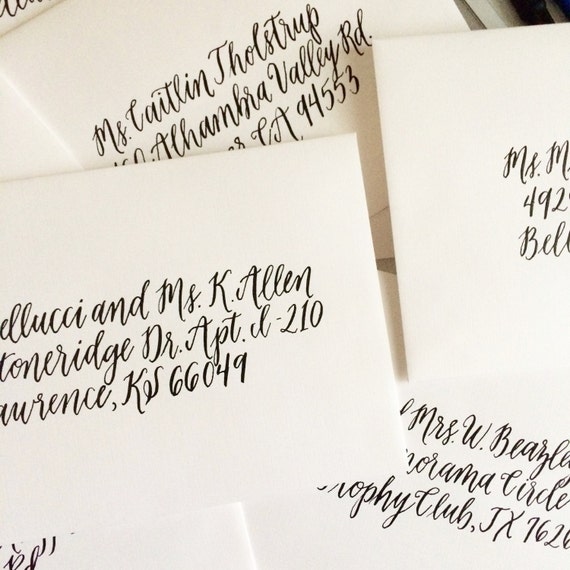 Ms. Caitlin Tholstrup
Alhambra Valley Rd.
CA 94553
Ms. M
492
Bell
ellucci and Ms. K. Allen
toneridge Dr. Apt. 210
awrence, KS 66049
Mrs. W. Beazle
norama Circle
rophy Club, TX 7626